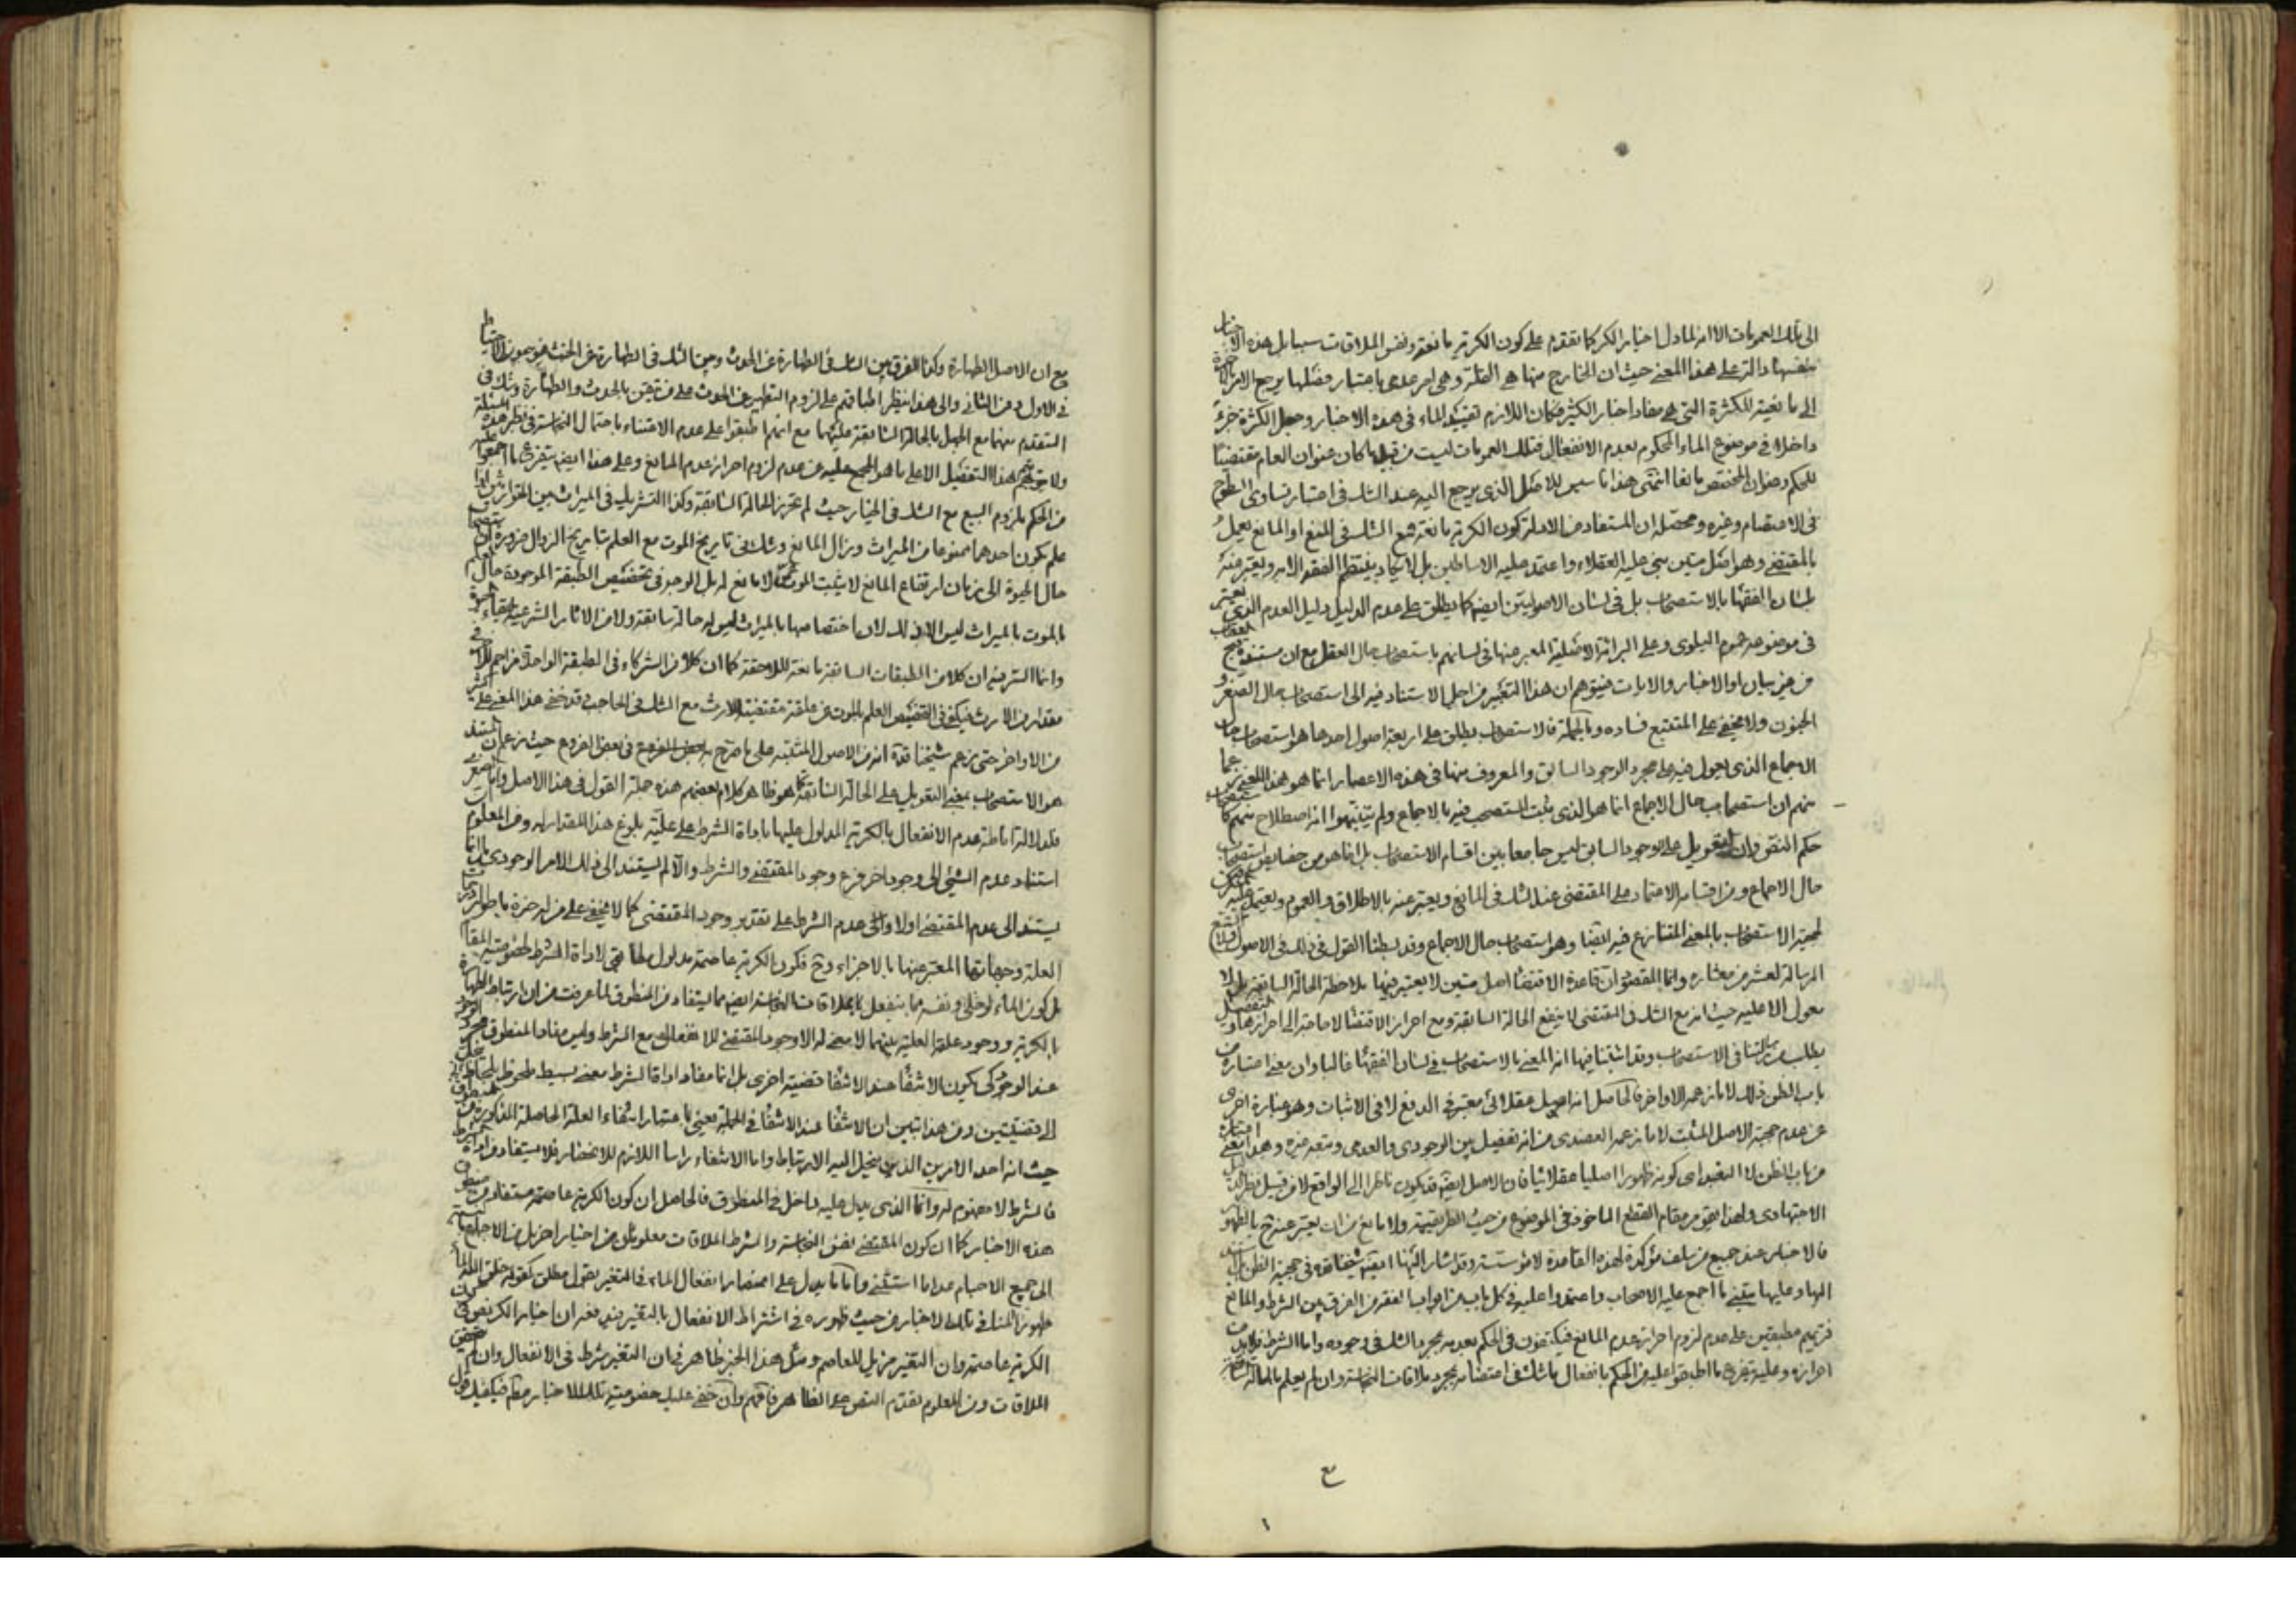 الى تلك العمومات الا انه لما دل اخبار الكر كما تقدم على كون الكرية مانعة ونفس الملاقات سببا بل هذه الاخبار
بنفسها دالة على هذا المعنى حيث ان الخارج منها هي القلة وهي امر عدمي باعتبار فصلها يرجع الامر
الى مانعية الكثرة التي هي مفاد اخبار الكثير فكان اللازم تقييد الماء في هذه الاخبار وجعل الكثرة جزء
داخلا في موضوع الماء المحكوم بعدم الانفعال فتلك العمومات ليست من قبيل ما كان عنوان العام مقتضيا
للحكم وعنوان المخصص مانعا انتهى هذا تاسيس للاصل الذي يرجع اليه عند الشك في اعتبار تساوي السطوح
في الاعتصام وغيره ومحصله ان المستفاد من الادلة كون الكرية مانعة فمع الشك في المنع او المانع يعمل
بالمقتضي وهو اصل متين بنى عليه العقلاء واعتمد عليه الاساطين بل لا يكاد ينتظم الفقه الا به ويعبر عنه
بلسان الفقهاء بالاستصحاب بل في لسان الاصوليين ايضا كما يطلق على عدم الدليل دليل العدم الذي يعتبر
في موضوعه عموم البلوى وعلى البرائة الاصلية المعبر عنها في لسانهم باستصحاب حال العقل مع ان مستنده
من غير بيان او الاخبار والايات فيتوهم ان هذا التعبير من اجل الاستناد فيه الى استصحاب حال الصغر و
الجنون ولا يخفى على المتتبع فساده وبالجملة فالاستصحاب يطلق على اربعة اصول احدها هو استصحاب حال
الاجماع الذي يعول فيه على مجرد الوجود السابق والمعروف منها في هذه الاعصار انما هو هذا المعنى
منهم ان استصحاب حال الاجماع انما هو الذي ثبت المستصحب فيه بالاجماع ولم يتنبهوا انه اصطلاح منهم
حكم النقض وان التعويل على الوجود السابق ليس جامعا بين اقسام الاستصحاب بل انما هو من خصايص استصحاب
حال الاجماع ومن اقسامه الاعتماد على المقتضي عند الشك في المانع ويعبر عنه بالاطلاق والعموم ويعتمد عليه
لحجية الاستصحاب بالمعنى المتنازع فيه ايضا وهو استصحاب حال الاجماع وقد بسطنا القول في ذلك في الاصول
الرسالة لعشر من معشاره وانما المقصود ان قاعدة الاقتضاء اصل متين لا يعتبر فيها ملاحظة الحالة السابقة بل لا
معول الا عليه حيث انه مع الشك في المقتضي لا ينفع الحالة السابقة ومع احراز الاقتضاء لا حاجة الى احرازها
يطلب من رسالتنا في الاستصحاب وقد اثبتنا فيها انه المعني بالاستصحاب في لسان الفقهاء
باب الظن ذلك لا ما زعمه الاواخر فالحاصل انه اصيل عقلائي معتبر في الدفع لا في الاثبات وهو عبارة اخرى
عن عدم حجية الاصل المثبت لا ما زعمه العضدي من انه تفصيل بين الوجودي والعدمي وهذا معنى
من باب الظن لا التعبد اي كونه ظهورا اصليا عقلائيا فان الاصل ايضا قد يكون ناظرا الى الواقع لا من قبيل
الاجتهادي ولهذا يقوم مقام القطع الماخوذ في الموضوع من حيث الطريقية ولا مانع من ان يعبر عنه ح بالظهور
فالاخبار عند جميع من سلف مؤكدة لهذه القاعدة لا مؤسسة وقد اشار اليها ايضا شيخنا قده في حجية الظن
اليها وعليها يبتنى ما اجمع عليه الاصحاب واعتمدوا عليه في كل باب من ابواب الفقه من الفرق بين الشرط والمانع
فتريهم مطبقين على عدم لزوم احراز عدم المانع فيكتفون في الحكم بعدمه بمجرد الشك في وجوده واما الشرط فلا بد من
احرازه وعليه يتفرع ما اطبقوا عليه من الحكم بانفعال ما شك في اعتصامه بمجرد ملاقات النجاسة وان لم يعلم بالحالة السابقة
ع
مع ان الاصل الطهارة وكذا الفرق بين الشك في الطهارة عن الحدث وبين الشك في الطهارة عن الخبث فهو يحمون الاحتياط
في الاول دون الثاني والى هذا ينظر اطباقهم على لزوم التطهير عن الحدث على من تيقن بالحدث والطهارة وشك في
المتقدم منهما مع الجهل بالحالة السابقة عليهما مع انهم اطبقوا على عدم الاعتناء باحتمال النجاسة في نظير هذه المسئلة
ولا يتوهم هذا التفصيل الا على ما هو المجمع عليه من عدم لزوم احراز عدم المانع وعلى هذا ايضا يتفرع ما اجمعوا عليه
من الحكم بلزوم البيع مع الشك في الخيار حيث لم تحرز الحالة السابقة وكذا التشريك في الميراث بين المتوارثين اذا
علم بكون احدهما ممنوعا من الميراث وزال المانع وشك في تاريخ الموت مع العلم بتاريخ الزوال ضرورة ان استصحاب
حال الحيوة الى زمان ارتفاع المانع لا يثبت الموت حال لا مانع له بل الوجه في تخصيص الطبقة الموجودة حال العلم
بالموت بالميراث ليس الا ذلك لان اختصاصها بالميراث ليس له حالة سابقة ولا من الاثار الشرعية لبقاء الحيوة
وانما السر فيه ان كلا من الطبقات السابقة مانعة للاحقة كما ان كلا من الشركاء في الطبقة الواحدة مزاحم للاخر في
مقدار من الارث فيكفي في التخصيص العلم بالموت عن علقة مقتضية للارث مع الشك في الحاجب وقد خفي هذا المعنى على اكثر
من الاواخر حتى زعم شيخنا قده انه من الاصول المثبتة على ما صرح به في بعض الفروع حيث زعم ان المستند
هو الاستصحاب بمعنى التعويل على الحالة السابقة كما هو ظاهر كلام بعضهم هذه جملة القول في هذا الاصل واما الصغرى
فلدلالة اناطة عدم الانفعال بالكرية المدلول عليها باداة الشرط على علية بلوغ هذا المقدار له ومن المعلوم ان
استناد عدم الشيء الى وجود اخر فرع وجود المقتضي والشرط والا لم يستند الى ذلك الامر الوجودي بل انما
يستند الى عدم المقتضي اولا والى عدم الشرط على تقدير وجود المقتضي كما لا يخفى على من له خبرة باطوار
العلة وجهاتها المعبر عنها بالاجزاء وح فكون الكرية عاصمة مدلول مطابقي لاداة الشرط لخصوصية المقام
بل كون الماء لو خلي ونفسه مما ينفعل بملاقات النجاسة ايضا مما يستفاد من المنطوق لما عرفت من ان ارتباط الطهارة
بالكرية ووجود علقة العلية بينهما لا معنى له الا وجود المقتضي للانفعال مع الشرط وليس مفاد المنطوق مجرد الوجود
عند الوجود كي يكون الانتفاء عند الانتفاء قضية اخرى بل انما مفاد اداة الشرط معنى بسيط ملحوظ
الى قضيتين ومن هذا تبين ان الانتفاء عند الانتفاء في الجملة يعني باعتبار انتفاء العلة الحاصلة المذكورة من المنطوق
حيث انه احد الامرين الذين ينحل اليه الارتباط واما الانتفاء راسا اللازم للانحصار فلا يستفاد من اداة الشرط
فالشرط لا مفهوم له وانما الذي يدل عليه داخل في المنطوق فالحاصل ان كون الكرية عاصمة مستفاد من منطوق
هذه الاخبار كما ان كون المقتضي نفس النجاسة والشرط الملاقات معلومان من اخبار اخر بل من الاجماع
الى جميع الاجسام عدا ما استثني واما ما يدل على انحصار انفعال الماء في التغير بقول مطلق كقوله خلق الله الماء طهورا
ظهوره المنافي لتلك الاخبار من حيث ظهوره في اشتراط الانفعال بالتغير نعم ان اخبار الكر نص في كون
الكرية عاصمة وان التغير مزيل للعاصم ومثل هذا الخبر ظاهر في ان التغير شرط في الانفعال وان لم يتحقق
الملاقات ومن المعلوم تقدم النص على الظاهر فافهم وان خفي عليك خصوصية تلك الاخبار فيكفيك قول